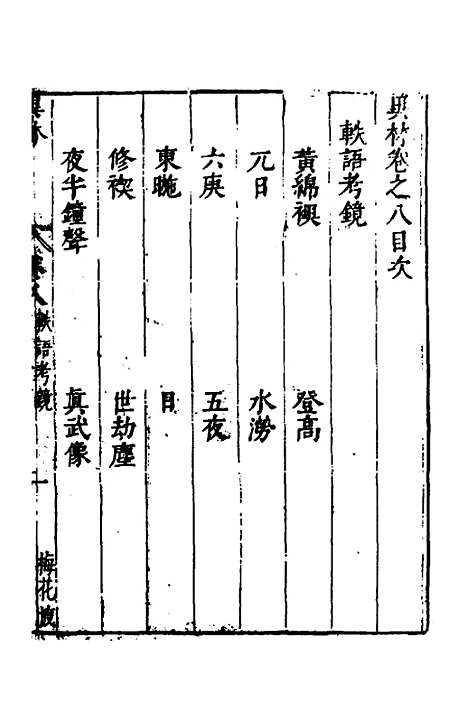 異林卷之八目次
軼語考鏡
黃綿襖 登高
元日 水澇
六庚 五夜
東晼 目
修禊 世劫塵
夜半鐘聲 真武像
異林 卷八 軼語考鏡 一 梅花渡